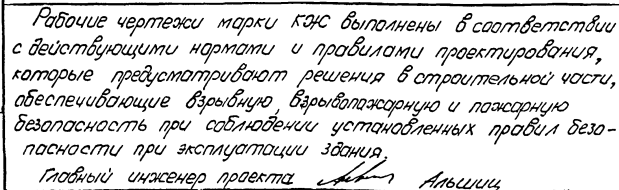 Рабочие чертежи марки КЖ выполнены в соответствии
с действующими нормами и правилами проектирования,
которые предусматривают решения в строительной части,
обеспечивающие взрывную, взрывопожарную и пожарную
безопасность при соблюдении установленных правил безо-
пасности при эксплуатации здания.
Главный инженер проекта Альшиц